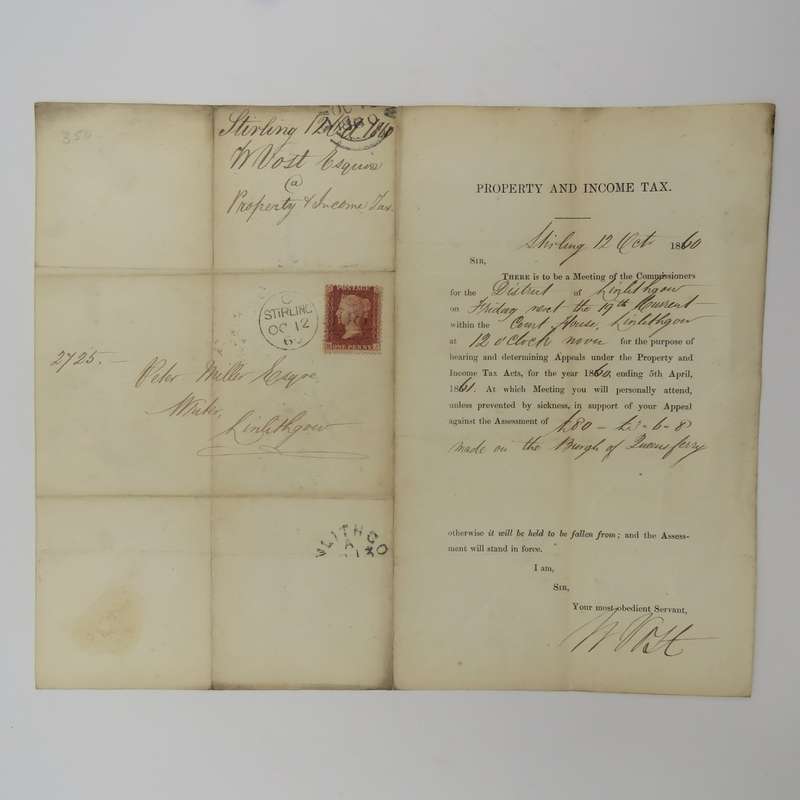 350
Stirling 12 Oct 1860
W Vost Esquire
@
Property & Income Tax.
C
STIRLING
OC 12
60
ONE PENNY
2725.
Peter Miller Esqre
Writer,
Linlithgow
LITHGO
A
PROPERTY AND INCOME TAX.
Stirling 12 Oct 1860
SIR,
THERE is to be a Meeting of the Commissioners
for the District of Linlithgow
on Friday next the 19th Current
within the Court House, Linlithgow
at 12 oClock noon for the purpose of
hearing and determining Appeals under the Property and
Income Tax Acts, for the year 1860, ending 5th April,
1861. At which Meeting you will personally attend,
unless prevented by sickness, in support of your Appeal
against the Assessment of £80 - £3-6-8
made on the Burgh of Queensferry
otherwise it will be held to be fallen from; and the Assess-
ment will stand in force.
I am,
SIR,
Your most obedient Servant,
W Vost